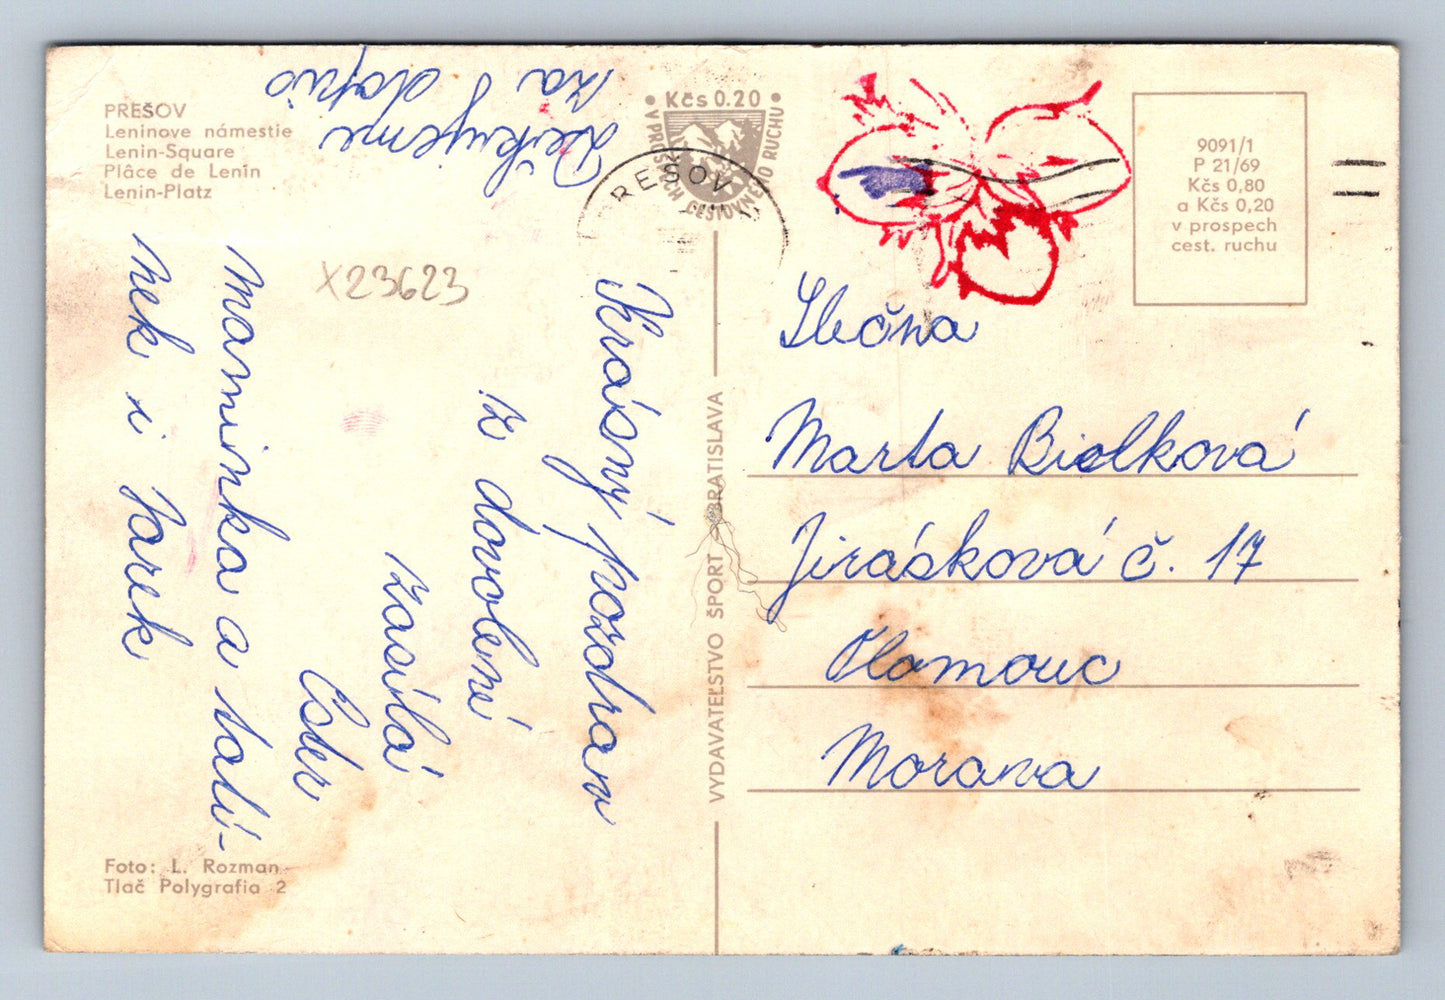 PREŠOV
Leninove námestie
Lenin-Square
Plâce de Lenin
Lenin-Platz
Děkujeme
za dopis
• Kčs 0.20 •
V PROSPECH CESTOVNÉHO RUCHU
PREŠOV
9091/1
P 21/69
Kčs 0,80
a Kčs 0,20
v prospech
cest. ruchu
X23623
Krásný pozdrav
z dovolené
zasílá
Ester
Maminka a tatí-
nek i Jarek
Foto: L. Rozman
Tlač Polygrafia 2
VYDAVATEĽSTVO ŠPORT BRATISLAVA
Slečna
Marta Biolková
Jirásková č. 17
Olomouc
Morava